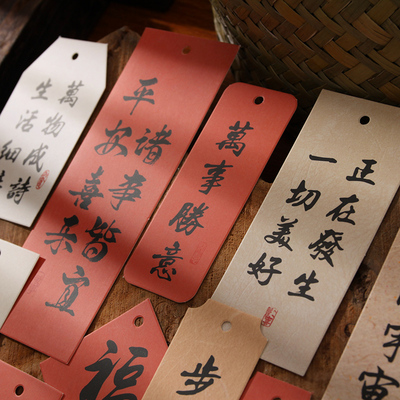 生活細
萬物成詩
平安喜乐
諸事皆宜
萬事勝意
一切美好
正在發生
福
步